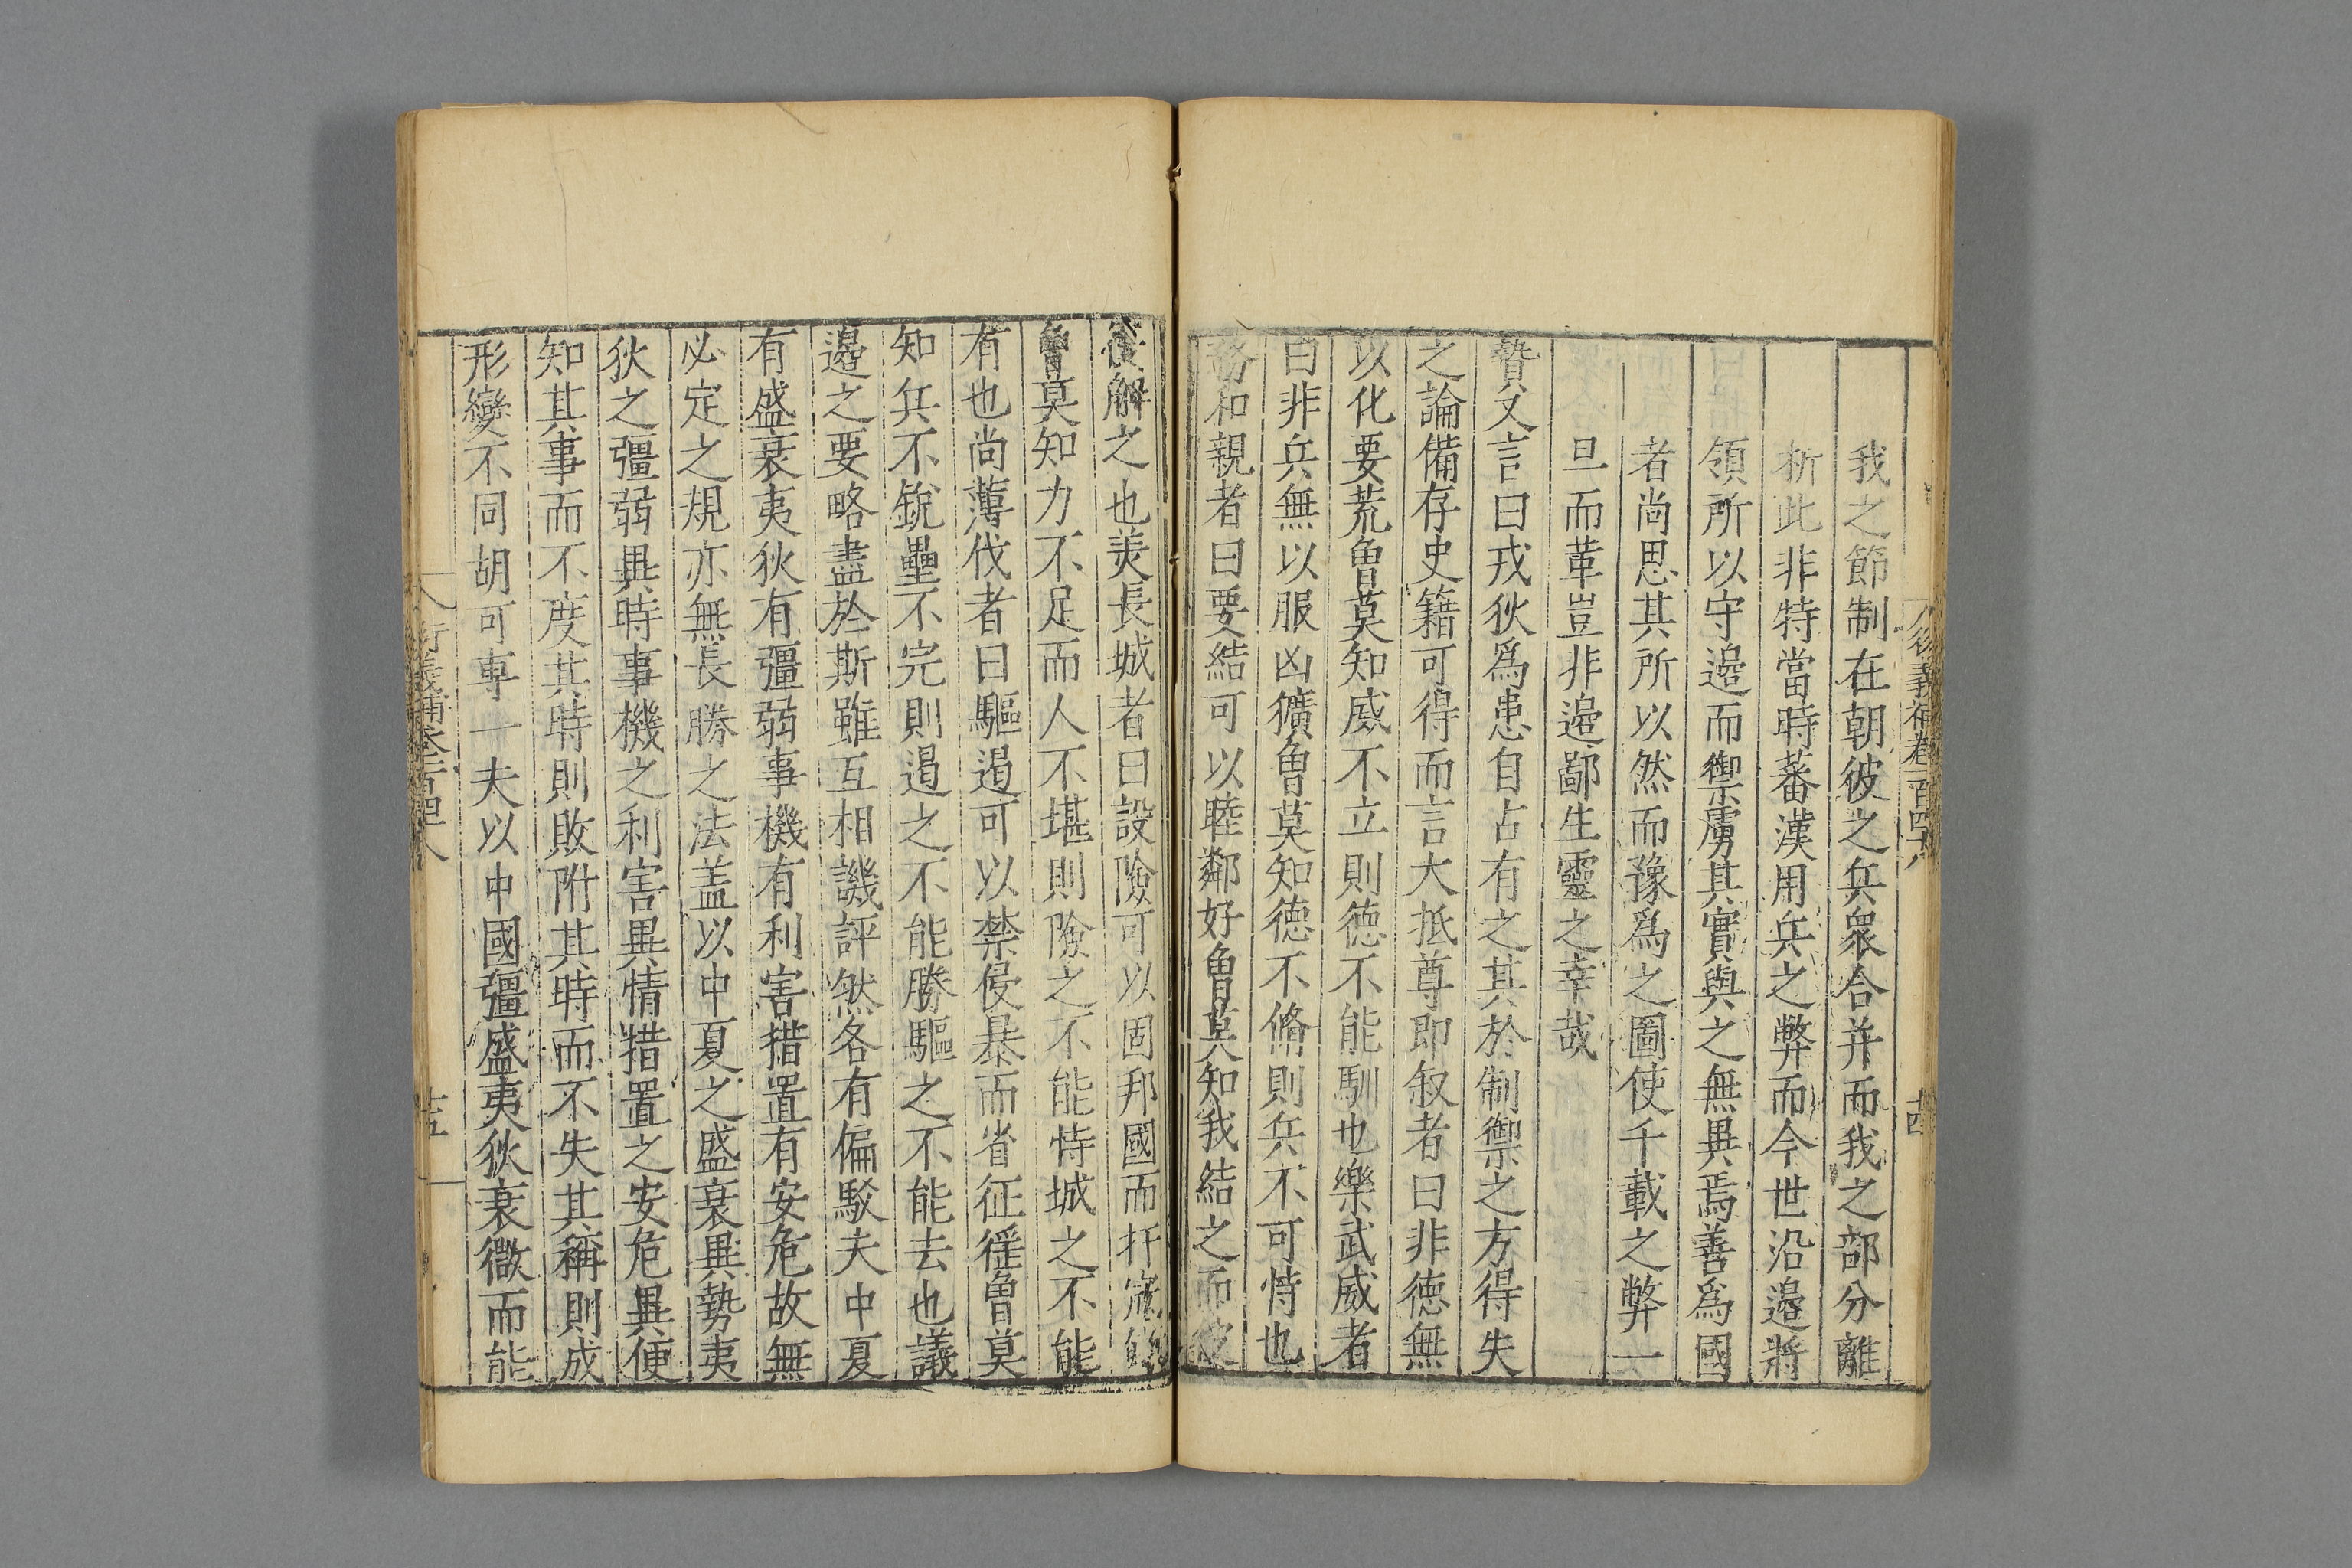 我之節制在朝彼之兵衆合并而我之部分離
析此非特當時蕃漢用兵之弊而今世沿邉將
領所以守邉而禦虜其實與之無異焉善爲國
者尚思其所以然而豫爲之圖使千載之弊一
旦而革豈非邉鄙生靈之幸哉
贄又言曰戎狄爲患自占有之其於制禦之方得失
之論備存史籍可得而言大抵尊即叙者曰非徳無
以化要荒魯莫知威不立則徳不能馴也樂武威者
曰非兵無以服凶獷魯莫知徳不脩則兵不可恃也
務和親者曰要結可以睦鄰好魯莫知我結之而彼
復解之也羙長城者曰設險可以固邦國而扞寇
魯莫知力不足而人不堪則險之不能恃城之不能
有也尚薄伐者曰驅遏可以禁侵暴而省征徭魯莫
知兵不銳壘不完則遏之不能勝驅之不能去也議
邉之要略盡於斯雖互相譏評然各有偏駁夫中夏
有盛衰夷狄有彊弱事機有利害措置有安危故無
必定之規亦無長勝之法盖以中夏之盛衰異勢夷
狄之彊弱異時事機之利害異情措置之安危異便
知其事而不度其時則敗附其時而不失其稱則成
形變不同胡可專一夫以中國彊盛夷狄衰微而能